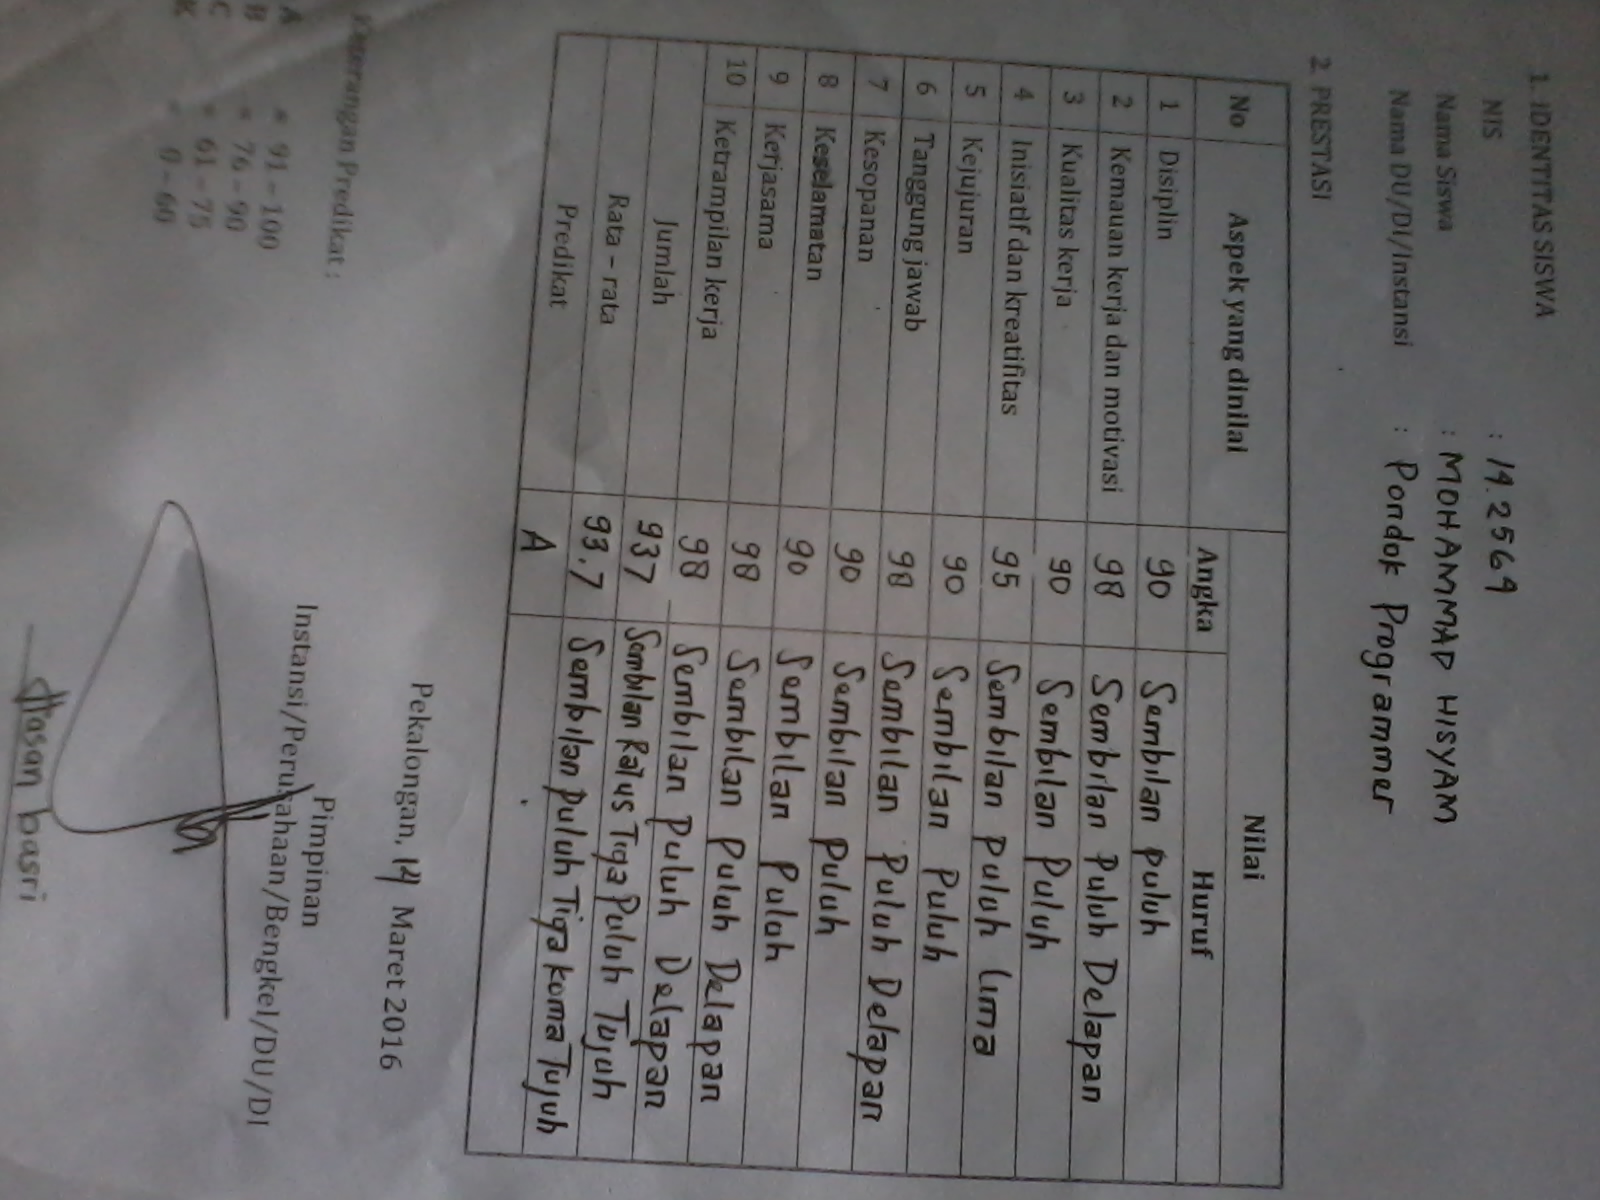 1. IDENTITAS SISWA
NIS : 14.2569
Nama Siswa : MOHAMMAD HISYAM
Nama DU/DI/Instansi : Pondok Programmer
2. PRESTASI
No Aspek yang dinilai Nilai
Angka Huruf
1 Disiplin 90 Sembilan puluh
2 Kemauan kerja dan motivasi 98 Sembilan Puluh Delapan
3 Kualitas kerja 90 Sembilan Puluh
4 Inisiatif dan kreatifitas 95 Sembilan Puluh Lima
5 Kejujuran 90 Sembilan Puluh
6 Tanggung jawab 98 Sembilan Puluh Delapan
7 Kesopanan 90 Sembilan Puluh
8 Keselamatan 90 Sembilan Puluh
9 Kerjasama 98 Sembilan Puluh Delapan
10 Ketrampilan kerja 98 Sembilan Puluh Delapan
Jumlah 937 Sembilan Ratus Tiga Puluh Tujuh
Rata – rata 93.7 Sembilan puluh Tiga koma Tujuh
Predikat A
Pekalongan, 14 Maret 2016
Keterangan Predikat :
A = 91 – 100
B = 76 – 90
C = 61 – 75
K = 0 – 60
Pimpinan
Instansi/Perusahaan/Bengkel/DU/DI
Hasan basri